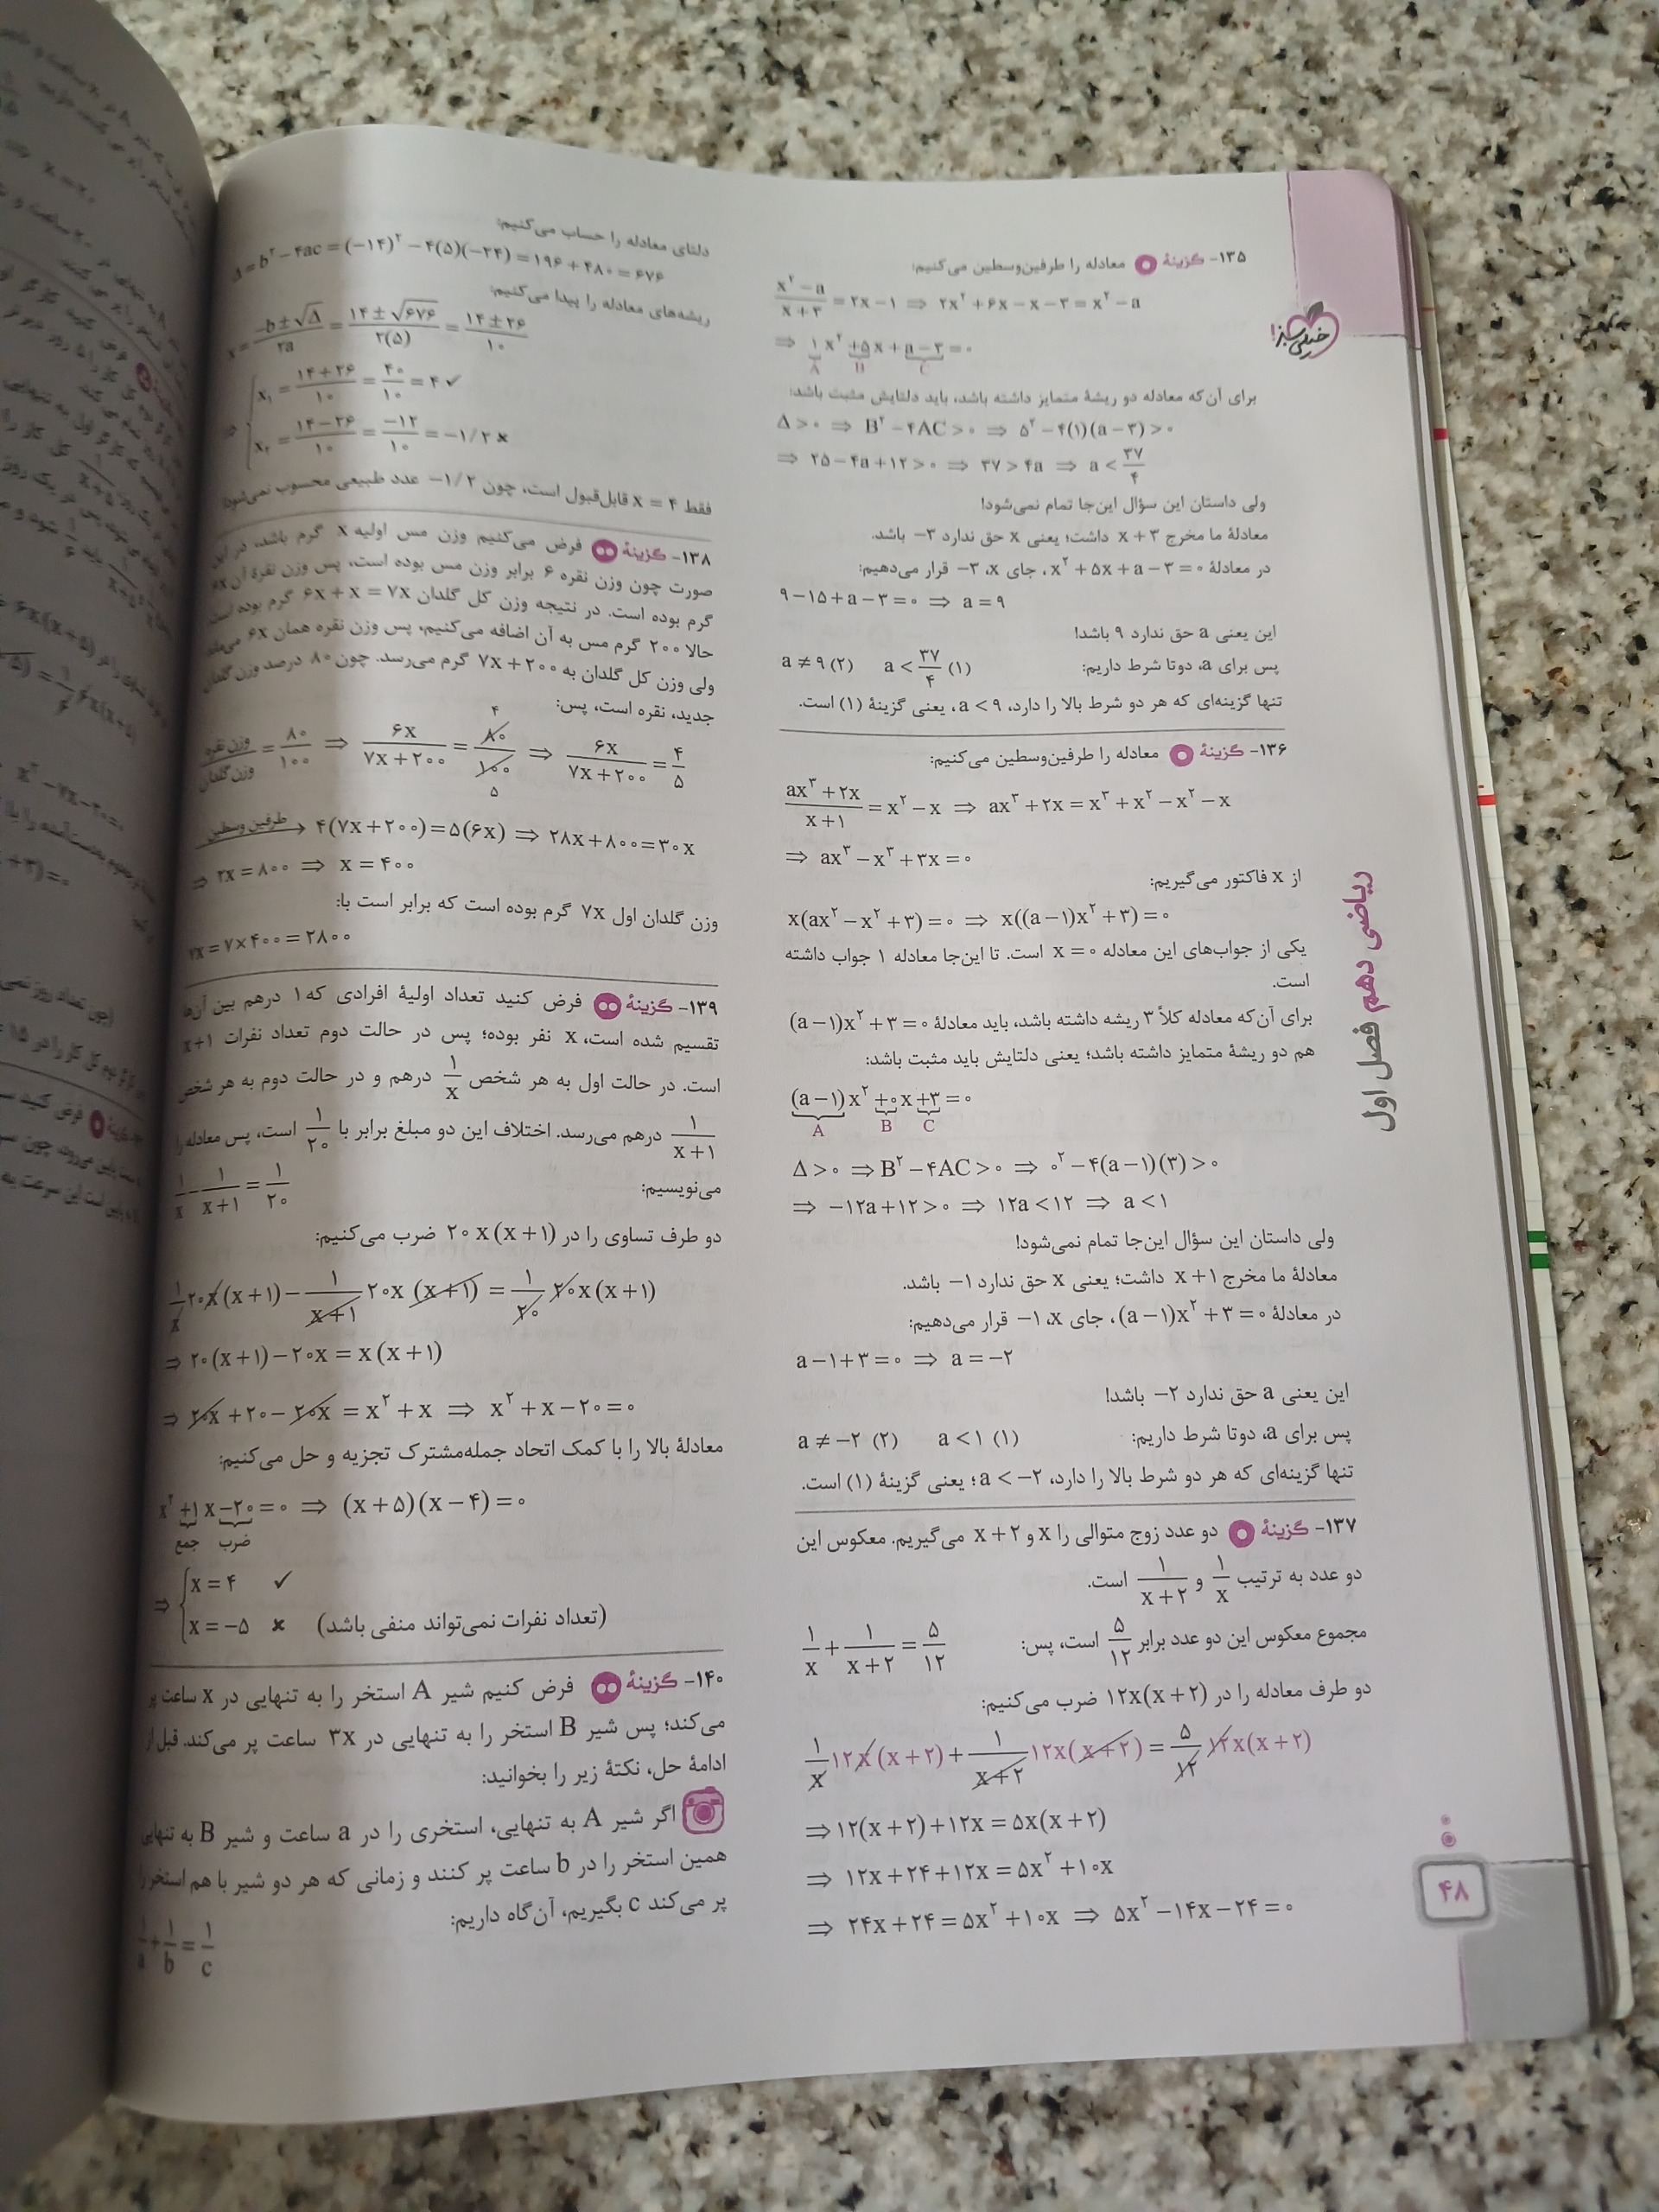 خیلی سبز!
ریاضی دهم فصل اول
۴۸
۱۳۵- گزینهٔ ۱ معادله را طرفین‌وسطین می‌کنیم:
(x^۲ − a)/(x + ۳) = ۲x − ۱ ⇒ ۲x^۲ + ۶x − x − ۳ = x^۲ − a
⇒ ۱x^۲ + ۵x + a − ۳ = ۰
A B C
برای آن‌که معادله دو ریشهٔ متمایز داشته باشد، باید دلتایش مثبت باشد:
Δ > ۰ ⇒ B^۲ − ۴AC > ۰ ⇒ ۵^۲ − ۴(۱)(a − ۳) > ۰
⇒ ۲۵ − ۴a + ۱۲ > ۰ ⇒ ۳۷ > ۴a ⇒ a < ۳۷/۴
ولی داستان این سؤال این‌جا تمام نمی‌شود!
معادلهٔ ما مخرج x + ۳ داشت؛ یعنی x حق ندارد −۳ باشد.
در معادلهٔ x^۲ + ۵x + a − ۳ = ۰، جای x، −۳ قرار می‌دهیم:
۹ − ۱۵ + a − ۳ = ۰ ⇒ a = ۹
این یعنی a حق ندارد ۹ باشد!
پس برای a، دوتا شرط داریم: (۱) a < ۳۷/۴ (۲) a ≠ ۹
تنها گزینه‌ای که هر دو شرط بالا را دارد، a < ۹، یعنی گزینهٔ (۱) است.
۱۳۶- گزینهٔ ۱ معادله را طرفین‌وسطین می‌کنیم:
(ax^۳ + ۲x)/(x + ۱) = x^۲ − x ⇒ ax^۳ + ۲x = x^۳ + x^۲ − x^۲ − x
⇒ ax^۳ − x^۳ + ۳x = ۰
از x فاکتور می‌گیریم:
x(ax^۲ − x^۲ + ۳) = ۰ ⇒ x((a − ۱)x^۲ + ۳) = ۰
یکی از جواب‌های این معادله x = ۰ است. تا این‌جا معادله ۱ جواب داشته
است.
برای آن‌که معادله کلاً ۳ ریشه داشته باشد، باید معادلهٔ (a − ۱)x^۲ + ۳ = ۰
هم دو ریشهٔ متمایز داشته باشد؛ یعنی دلتایش باید مثبت باشد:
(a − ۱)x^۲ + ۰x + ۳ = ۰
A B C
Δ > ۰ ⇒ B^۲ − ۴AC > ۰ ⇒ ۰^۲ − ۴(a − ۱)(۳) > ۰
⇒ −۱۲a + ۱۲ > ۰ ⇒ ۱۲a < ۱۲ ⇒ a < ۱
ولی داستان این سؤال این‌جا تمام نمی‌شود!
معادلهٔ ما مخرج x + ۱ داشت؛ یعنی x حق ندارد −۱ باشد.
در معادلهٔ (a − ۱)x^۲ + ۳ = ۰، جای x، −۱ قرار می‌دهیم:
a − ۱ + ۳ = ۰ ⇒ a = −۲
این یعنی a حق ندارد −۲ باشد!
پس برای a، دوتا شرط داریم: (۱) a < ۱ (۲) a ≠ −۲
تنها گزینه‌ای که هر دو شرط بالا را دارد، a < −۲؛ یعنی گزینهٔ (۱) است.
۱۳۷- گزینهٔ ۱ دو عدد زوج متوالی را x و x + ۲ می‌گیریم. معکوس این
دو عدد به ترتیب ۱/x و ۱/(x + ۲) است.
مجموع معکوس این دو عدد برابر ۵/۱۲ است، پس: ۱/x + ۱/(x + ۲) = ۵/۱۲
دو طرف معادله را در ۱۲x(x + ۲) ضرب می‌کنیم:
۱/x ۱۲x(x + ۲) + ۱/(x + ۲) ۱۲x(x + ۲) = ۵/۱۲ ۱۲x(x + ۲)
⇒ ۱۲(x + ۲) + ۱۲x = ۵x(x + ۲)
⇒ ۱۲x + ۲۴ + ۱۲x = ۵x^۲ + ۱۰x
⇒ ۲۴x + ۲۴ = ۵x^۲ + ۱۰x ⇒ ۵x^۲ − ۱۴x − ۲۴ = ۰
دلتای معادله را حساب می‌کنیم:
Δ = b^۲ − ۴ac = (−۱۴)^۲ − ۴(۵)(−۲۴) = ۱۹۶ + ۴۸۰ = ۶۷۶
ریشه‌های معادله را پیدا می‌کنیم:
x = (−b ± √Δ)/۲a = (۱۴ ± √۶۷۶)/۲(۵) = (۱۴ ± ۲۶)/۱۰
⇒ x₁ = (۱۴ + ۲۶)/۱۰ = ۴۰/۱۰ = ۴ ✓
x₂ = (۱۴ − ۲۶)/۱۰ = −۱۲/۱۰ = −۱/۲ ✗
فقط x = ۴ قابل‌قبول است، چون −۱/۲ عدد طبیعی محسوب نمی‌شود
۱۳۸- گزینهٔ ۲ فرض می‌کنیم وزن مس اولیه x گرم باشد، در این
صورت چون وزن نقره ۶ برابر وزن مس بوده است، پس وزن نقرهٔ آن ۶x
گرم بوده است. در نتیجه وزن کل گلدان ۶x + x = ۷x گرم بوده است
حالا ۲۰۰ گرم مس به آن اضافه می‌کنیم، پس وزن نقره همان ۶x
ولی وزن کل گلدان به ۷x + ۲۰۰ گرم می‌رسد. چون ۸۰ درصد وزن گلدان
جدید، نقره است، پس:
وزن نقره/وزن گلدان = ۸۰/۱۰۰ ⇒ ۶x/(۷x + ۲۰۰) = ۸۰/۱۰۰ ⇒ ۶x/(۷x + ۲۰۰) = ۴/۵
طرفین وسطین → ۴(۷x + ۲۰۰) = ۵(۶x) ⇒ ۲۸x + ۸۰۰ = ۳۰x
⇒ ۲x = ۸۰۰ ⇒ x = ۴۰۰
وزن گلدان اول ۷x گرم بوده است که برابر است با:
۷x = ۷ × ۴۰۰ = ۲۸۰۰
۱۳۹- گزینهٔ ۲ فرض کنید تعداد اولیهٔ افرادی که ۱ درهم بین آن‌ها
تقسیم شده است، x نفر بوده؛ پس در حالت دوم تعداد نفرات x + ۱
است. در حالت اول به هر شخص ۱/x درهم و در حالت دوم به هر شخص
۱/(x + ۱) درهم می‌رسد. اختلاف این دو مبلغ برابر با ۱/۲۰ است، پس معادله را
می‌نویسیم: ۱/x − ۱/(x + ۱) = ۱/۲۰
دو طرف تساوی را در ۲۰x(x + ۱) ضرب می‌کنیم:
۱/x ۲۰x(x + ۱) − ۱/(x + ۱) ۲۰x (x + ۱) = ۱/۲۰ ۲۰x(x + ۱)
⇒ ۲۰(x + ۱) − ۲۰x = x(x + ۱)
⇒ ۲۰x + ۲۰ − ۲۰x = x^۲ + x ⇒ x^۲ + x − ۲۰ = ۰
معادلهٔ بالا را با کمک اتحاد جمله‌مشترک تجزیه و حل می‌کنیم:
x^۲ + ۱x − ۲۰ = ۰ ⇒ (x + ۵)(x − ۴) = ۰
جمع ضرب
⇒ x = ۴ ✓
x = −۵ ✗ (تعداد نفرات نمی‌تواند منفی باشد)
۱۴۰- گزینهٔ ۲ فرض کنیم شیر A استخر را به تنهایی در x ساعت پر
می‌کند؛ پس شیر B استخر را به تنهایی در ۳x ساعت پر می‌کند. قبل از
ادامهٔ حل، نکتهٔ زیر را بخوانید:
اگر شیر A به تنهایی، استخری را در a ساعت و شیر B به تنهایی
همین استخر را در b ساعت پر کنند و زمانی که هر دو شیر با هم استخر را
پر می‌کند c بگیریم، آن‌گاه داریم:
۱/a + ۱/b = ۱/c